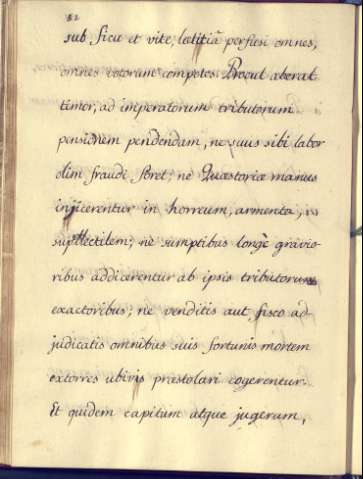 82
sub ficu et vite, lœtitiâ perfusi omnes,
omnes votorum compotes. Procul aberat
timor, ad imperatorum tributorum
pensionem pendendam, ne suus sibi labor
olim fraudi foret; nè Quæstoriæ manus
injicerentur in horreum, armenta,
supellectilem; nè sumptibus longè gravio-
ribus addicerentur ab ipsis tributorum
exactoribus; ne venditis aut fisco ad-
judicatis omnibus suis fortunis mortem
extorres ubivis præstolari cogerentur.
Et quidem capitum atque jugerum,